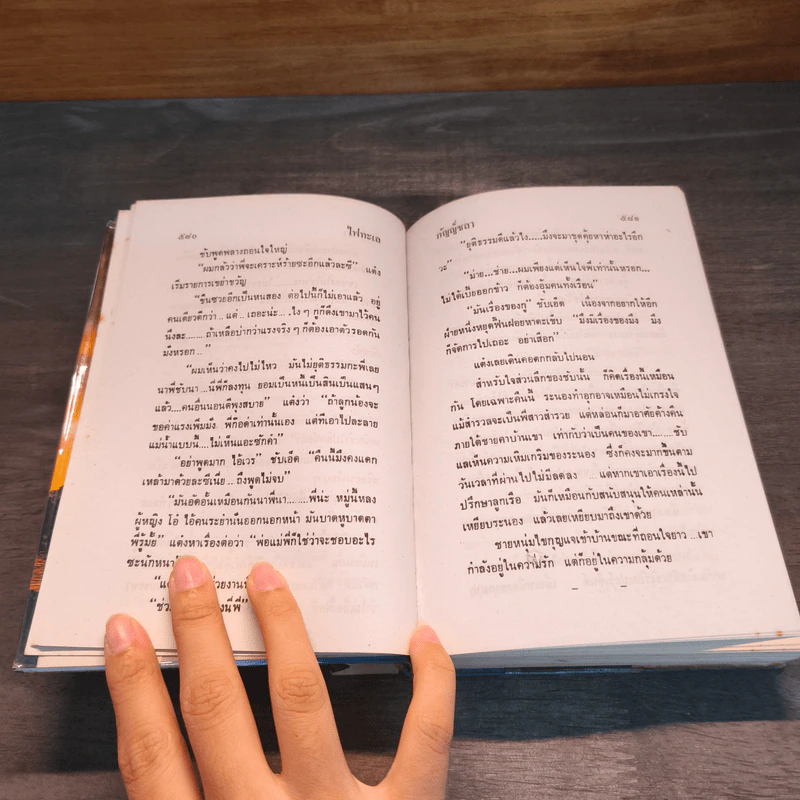 ๕๘๐
ไฟทะเล
ชับพูดพลางถอนใจใหญ่
“ผมกลัวว่าพี่จะเคราะห์ร้ายซะอีกแล้วละซี” แต๋ง
เริ่มรายการเขย่าขวัญ
“ขืนซวยอีกเป็นหนสอง ต่อไปนี้ก็ไม่เอาแล้ว อยู่
คนเดียวดีกว่า... แต่... เถอะน่ะ... ..ไงๆ กูก็ดึงเขามาไว้คน
นึงละ...... ถ้าเหลือบ่ากว่าแรงจริงๆ ก็ต้องเอาตัวรอดกัน
มั่งหรอก...”
“ผมเห็นว่าคงไปไม่ไหว มันไม่ยุติธรรมกะพี่เลย
นาพี่ชับนา ...นี่พี่ก็ลงทุน ยอมเป็นหนี้เป็นสินเป็นแสนๆ
แล้ว....คนอื่นนอนตีพุงสบาย” แต๋งว่า “ถ้าลูกน้องจะ
ขอค่าแรงเพิ่มมั่ง พี่ก็อด่าเท่านั้นเอง แต่ทีเอาไปละลาย
แม่น้ำแบบนี้....ไม่เห็นแอะซักคำ”
“อย่าพูดมาก ไอ้เวร” ชับเอ็ด “คืนนี้มึงคงแดก
เหล้ามาด้วยละซีเนี่ย ..ถึงพูดไม่จบ”
“มันอัดอั้นเหมือนกันนาพี่นา........พี่น่ะ หมู่นี้หลง
ผู้หญิง โอ๋ ไอ้คนระยำนี่ออกนอกหน้า มันบาดหูบาดตา
พี่รู้มั้ย” แต๋งหาเรื่องต่อว่า “พ่อแม่พี่ก็ใช่ว่าจะชอบอะไร
ซะนักหนา
กัญญ์ชลา
๕๘๑
“ยุติธรรมดีแล้วไง.....มึงจะมาขุดคุ้ยหาห่าอะไรอีก
วะ”
“ม่าย...ช่าย...ผมเพียงแต่เห็นใจพี่เท่านั้นหรอก...
ไม่ได้เบี้ยออกข้าว ก็ต้องอุ้มคนทั้งเรือน”
“มันเรื่องของกู” ชับเอ็ด เนื่องจากอยากให้อีก
ฝ่ายหนึ่งหยุดฟื้นฝอยหาตะเข็บ “มึงมีเรื่องของมึง มึง
ก็จัดการไปเถอะ อย่าเสือก”
แต๋งเลยเดินคอตกกลับไปนอน
สำหรับใจส่วนลึกของชับนั้น ก็คิดเรื่องนี้เหมือน
กัน โดยเฉพาะคืนนี้ ระนองทำอุกอาจเหมือนไม่เกรงใจ
แม้สำรวลจะเป็นพี่สาวสำรวย แต่หล่อนก็มาอาศัยค้างคืน
ภายใต้ชายคาบ้านเขา เท่ากับว่าเป็นคนของเขา........ชับ
แลเห็นความเหิมเกริมของระนอง ซึ่งก็คงจะมากขึ้นตาม
วันเวลาที่ผ่านไปไม่มีลดลง ...แต่หากเขาเอาเรื่องนี้ไป
ปรึกษาลูกเรือ มันก็เหมือนกับสนับสนุนให้คนเหล่านั้น
เหยียบระนอง แล้วเลยเหยียบมาถึงเขาด้วย
ชายหนุ่มไขกุญแจเข้าบ้านขณะที่ถอนใจยาว ...เขา
กำลังอยู่ในความรัก แต่ก็อยู่ในความกลุ้มด้วย